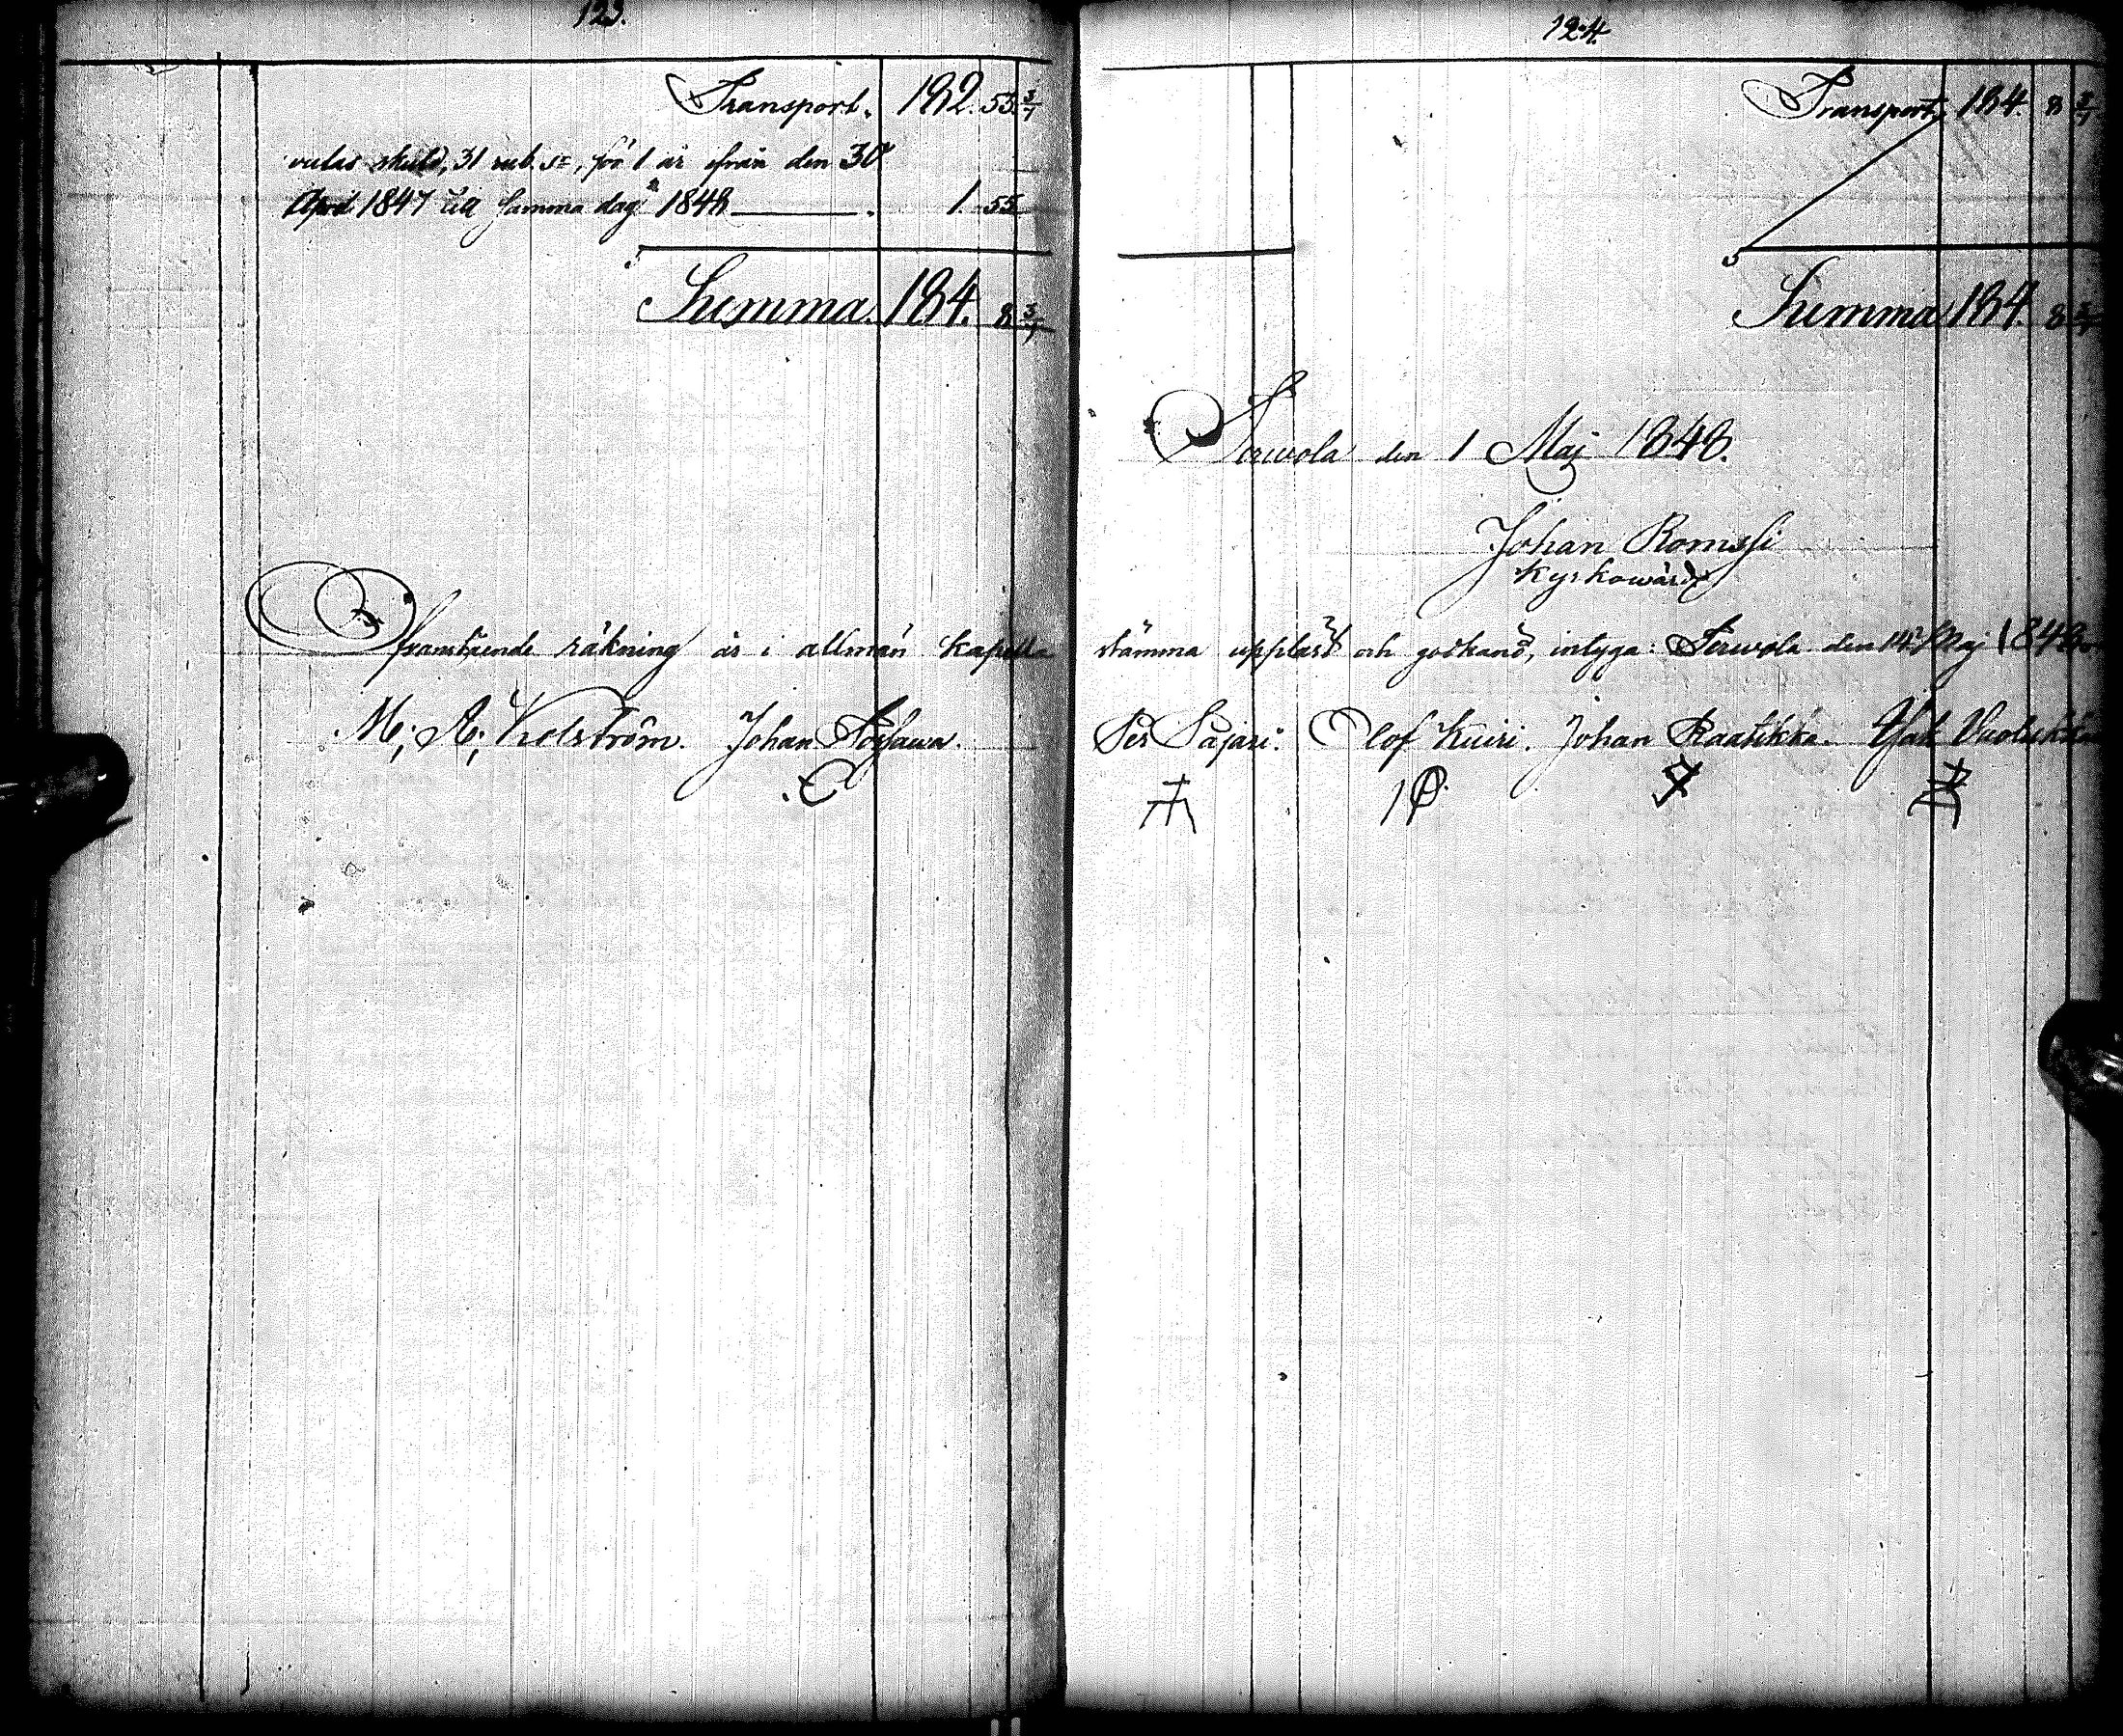 123.
Transport. 182. 53. 3/7
rulas skuld, 31 rub. sr, för 1 år ifrån den 30
April 1847 till samma dag 1848 1. 55
Summa. 184. 8 3/7
Att framstående räkning är i allmän kapells
M; A; Kjelström. Johan
124.
Transport, 184. 8 3/7
Summa 184. 8 3/7
Terwola den 1 Maj 1848.
Johan Romssi
Kyrkowärd
stämma uppläst och godkänd, intyga: Terwola den 14 Maj 1848.
Per Pajari. Olof Kuiri. Johan Raatikka. Isak